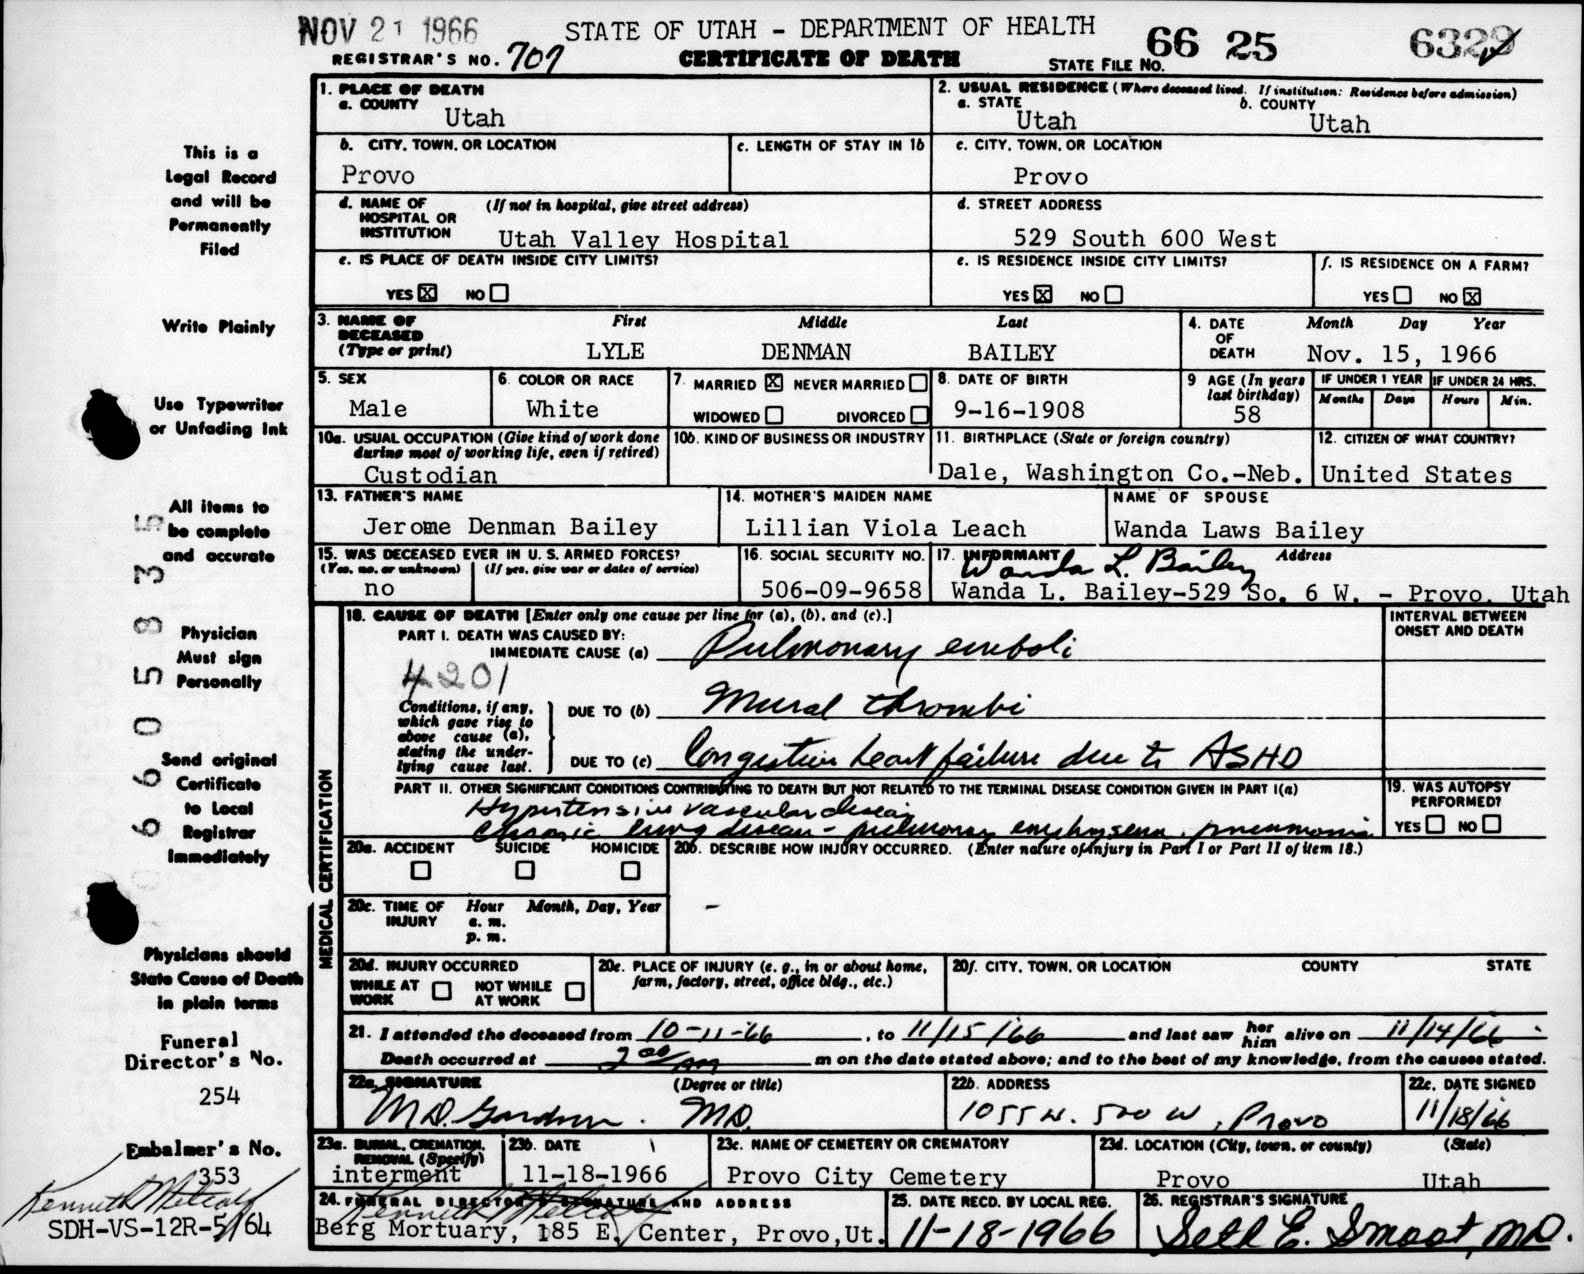 NOV 21 1966
STATE OF UTAH - DEPARTMENT OF HEALTH
REGISTRAR'S NO. 707
CERTIFICATE OF DEATH
STATE FILE NO. 66 25
1. PLACE OF DEATH
a. COUNTY
Utah
2. USUAL RESIDENCE (Where deceased lived. If institution: Residence before admission)
a. STATE b. COUNTY
Utah Utah
b. CITY, TOWN, OR LOCATION
Provo
c. LENGTH OF STAY IN 1b
c. CITY, TOWN, OR LOCATION
Provo
d. NAME OF (If not in hospital, give street address)
HOSPITAL OR
INSTITUTION Utah Valley Hospital
d. STREET ADDRESS
529 South 600 West
e. IS PLACE OF DEATH INSIDE CITY LIMITS?
YES X NO
e. IS RESIDENCE INSIDE CITY LIMITS?
YES X NO
f. IS RESIDENCE ON A FARM?
YES NO X
3. NAME OF First Middle Last
DECEASED
(Type or print) LYLE DENMAN BAILEY
4. DATE Month Day Year
OF
DEATH Nov. 15, 1966
5. SEX
Male
6. COLOR OR RACE
White
7. MARRIED X NEVER MARRIED
WIDOWED DIVORCED
8. DATE OF BIRTH
9-16-1908
9 AGE (In years
last birthday)
58
IF UNDER 1 YEAR IF UNDER 24 HRS.
Months Days Hours Min.
10a. USUAL OCCUPATION (Give kind of work done
during most of working life, even if retired)
Custodian
10b. KIND OF BUSINESS OR INDUSTRY
11. BIRTHPLACE (State or foreign country)
Dale, Washington Co.-Neb.
12. CITIZEN OF WHAT COUNTRY?
United States
13. FATHER'S NAME
Jerome Denman Bailey
14. MOTHER'S MAIDEN NAME
Lillian Viola Leach
NAME OF SPOUSE
Wanda Laws Bailey
15. WAS DECEASED EVER IN U. S. ARMED FORCES?
(Yes, no, or unknown) (If yes, give war or dates of service)
no
16. SOCIAL SECURITY NO.
506-09-9658
17. INFORMANT Address
Wanda L. Bailey
Wanda L. Bailey-529 So. 6 W. - Provo, Utah
18. CAUSE OF DEATH [Enter only one cause per line for (a), (b), and (c).]
INTERVAL BETWEEN
ONSET AND DEATH
PART I. DEATH WAS CAUSED BY:
IMMEDIATE CAUSE (a) Pulmonary emboli
4201
Conditions, if any,
which gave rise to
above cause (a),
stating the under-
lying cause last.
DUE TO (b) Mural thrombi
DUE TO (c) Congestive heart failure due to ASHD
PART II. OTHER SIGNIFICANT CONDITIONS CONTRIBUTING TO DEATH BUT NOT RELATED TO THE TERMINAL DISEASE CONDITION GIVEN IN PART I(a)
Hypertensive vascular disease
Chronic lung disease - pulmonary emphysema, pneumonia
19. WAS AUTOPSY
PERFORMED?
YES NO
20a. ACCIDENT SUICIDE HOMICIDE
20b. DESCRIBE HOW INJURY OCCURRED. (Enter nature of injury in Part I or Part II of item 18.)
-
20c. TIME OF Hour Month, Day, Year
INJURY a. m.
p. m.
20d. INJURY OCCURRED
WHILE AT NOT WHILE
WORK AT WORK
20e. PLACE OF INJURY (e. g., in or about home,
farm, factory, street, office bldg., etc.)
20f. CITY, TOWN, OR LOCATION COUNTY STATE
21. I attended the deceased from 10-11-66, to 11/15/66 and last saw her him alive on 11/14/66
Death occurred at 2 00 m on the date stated above; and to the best of my knowledge, from the causes stated.
22a. SIGNATURE (Degree or title)
M.D. Gardner. MD.
22b. ADDRESS
1055 N. 500 W, Provo
22c. DATE SIGNED
11/18/66
23a. BURIAL, CREMATION,
REMOVAL (Specify)
interment
23b. DATE
11-18-1966
23c. NAME OF CEMETERY OR CREMATORY
Provo City Cemetery
23d. LOCATION (City, town, or county) (State)
Provo Utah
24. FUNERAL DIRECTOR'S SIGNATURE AND ADDRESS
Kenneth Metcalf
Berg Mortuary, 185 E. Center, Provo, Ut.
25. DATE RECD. BY LOCAL REG.
11-18-1966
26. REGISTRAR'S SIGNATURE
Seth E. Smoot, MD.
MEDICAL CERTIFICATION
This is a
Legal Record
and will be
Permanently
Filed
Write Plainly
Use Typewriter
or Unfading Ink
All items to
be complete
and accurate
Physician
Must sign
Personally
Send original
Certificate
to Local
Registrar
Immediately
Physicians should
State Cause of Death
in plain terms
Funeral
Director's No.
254
Embalmer's No.
353
Kenneth Metcalf
SDH-VS-12R-5/64
66058355